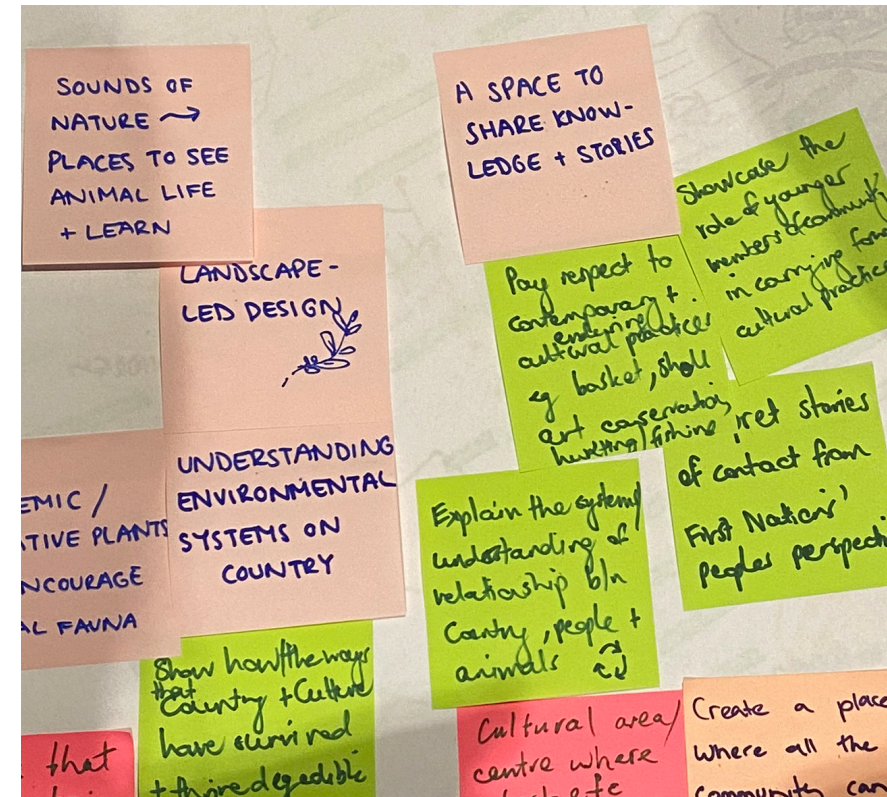 SOUNDS OF
NATURE →
PLACES TO SEE
ANIMAL LIFE
+ LEARN
A SPACE TO
SHARE KNOW-
LEDGE + STORIES
Showcase the
role of younger
members of community
in carrying
cultural practice
LANDSCAPE-
LED DESIGN
Pay respect to
contemporary +
enduring
cultural practices
eg basket, shell
art conservation,
hunting/fishing
stories
of contact from
First Nations'
peoples
EMIC /
TIVE PLANTS
NCOURAGE
AL FAUNA
UNDERSTANDING
ENVIRONMENTAL
SYSTEMS ON
COUNTRY
Explain the systems/
understanding of
relationship b/n
Country, people +
animals
Show how/the ways
that
Country + Culture
have survived
that
Cultural area/
centre where
Create a place
where all the
community can